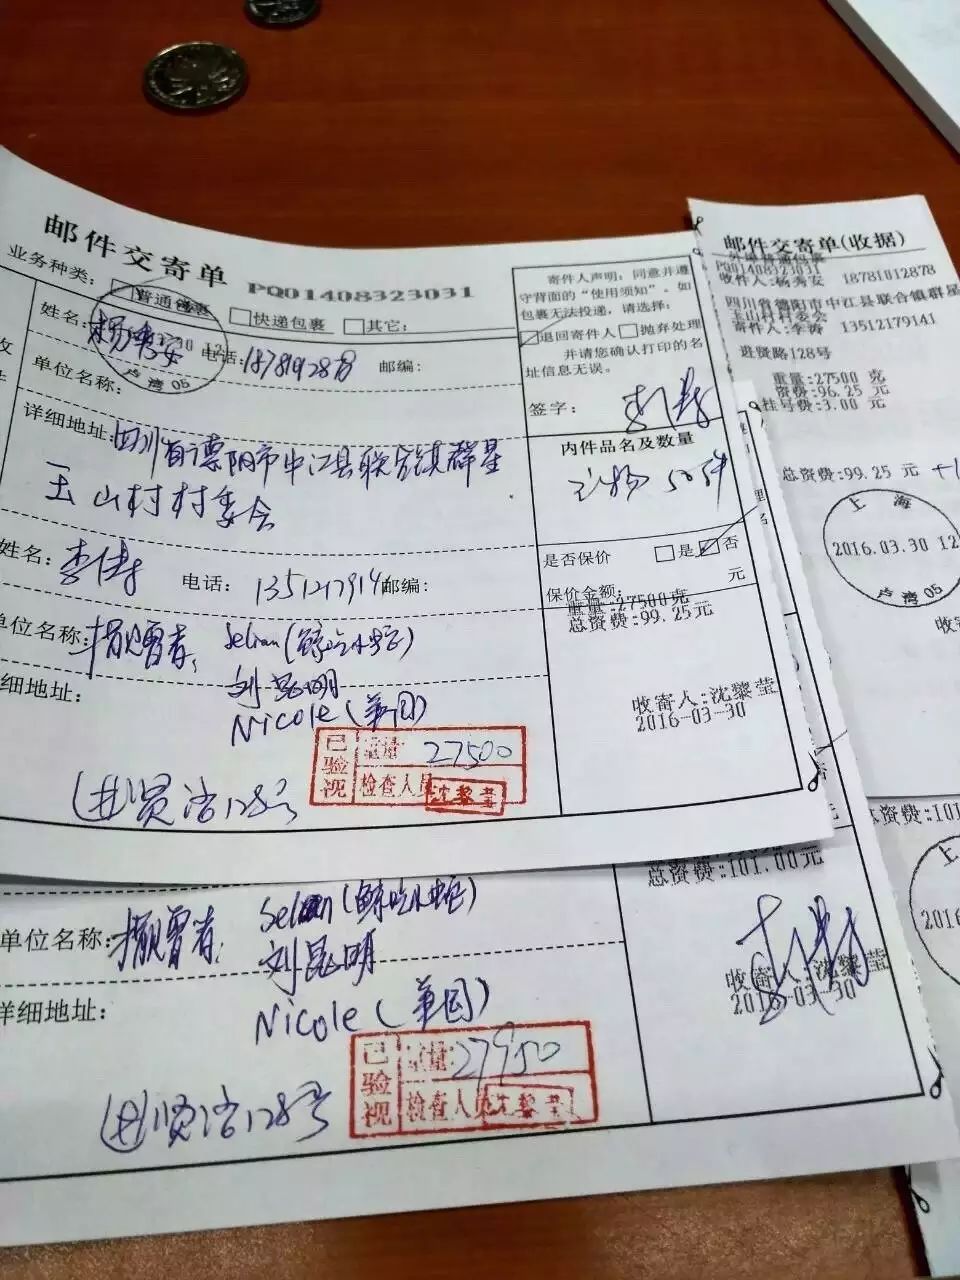 邮件交寄单
PQ01408323031
业务种类：
普通包裹
快递包裹
其它：
姓名：
杨秀安
电话：
邮编：
单位名称：
详细地址：
四川省德阳市中江县联合镇群星
玉山村村委会
姓名：
李涛
电话：
邮编：
单位名称：
捐赠者：
刘昆明
Nicole（美国）
细地址：
进贤路128号
卢湾05
寄件人声明：同意并遵
守背面的“使用须知”。如
包裹无法投递，请选择：
退回寄件人
抛弃处理
并请您确认打印的名
址信息无误。
签字：
内件品名及数量
是否保价
是
否
保价金额：
元
重量:27500克
总资费:99.25元
收寄人:沈黎莹
2016-03-30
已验视
重量：
27500
检查人员
沈黎莹
邮件交寄单(收据)
PQ01408323031
收件人:杨秀安 18781012878
四川省德阳市中江县联合镇群星
玉山村村委会
寄件人:李涛 13512179141
进贤路128号
重量:27500 克
资费:96.25 元
挂号费:3.00 元
总资费:99.25 元
上海
2016.03.30 12
卢湾05
总资费:101.00元
单位名称：
捐赠者：
刘昆明
详细地址：
Nicole（美国）
进贤路128号
已验视
重量：
27950
检查人员
沈黎莹
收寄人:沈黎莹
2016-03-30
总资费:101
上
2016